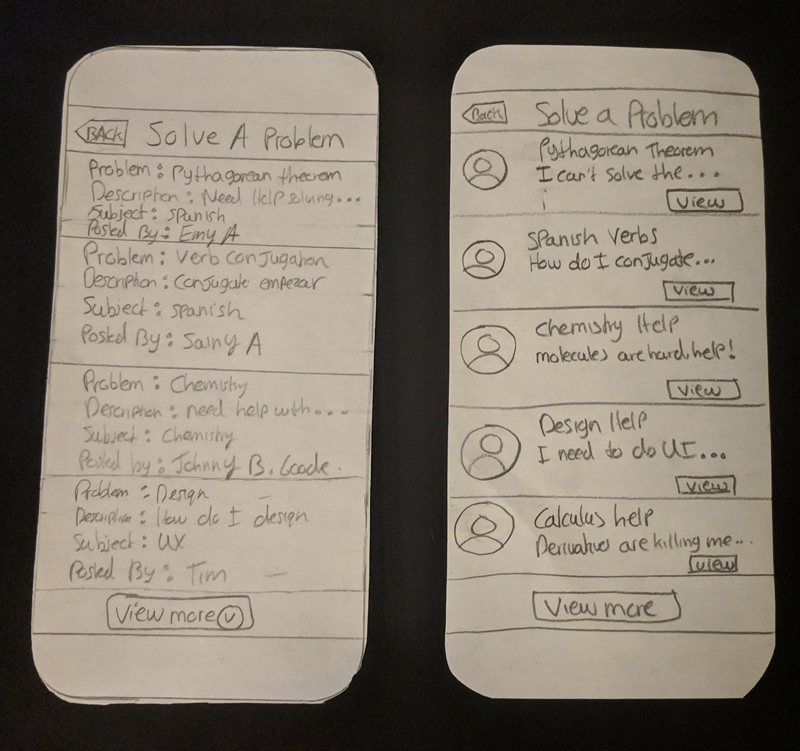 BACK Solve A Problem
Problem: Pythagorean theorem
Description: Need Help
Subject: Spanish
Posted By: Emy A.
Problem: Verb conjugation
Description: Conjugate empezar
Subject: Spanish
Posted By: Sainy A
Problem: Chemistry
Description: need help with...
Subject: Chemistry
Posted by: Johnny B. Goode.
Problem: Design
Description: How do I design
Subject: UX
Posted By: Tim
View more
Back Solve a Problem
Pythagorean Theorem
I can't solve the...
View
Spanish Verbs
How do I conjugate...
View
Chemistry Help
molecules are hard, help!
View
Design Help
I need to do UI...
View
Calculus help
Derivatives are killing me...
View
View more